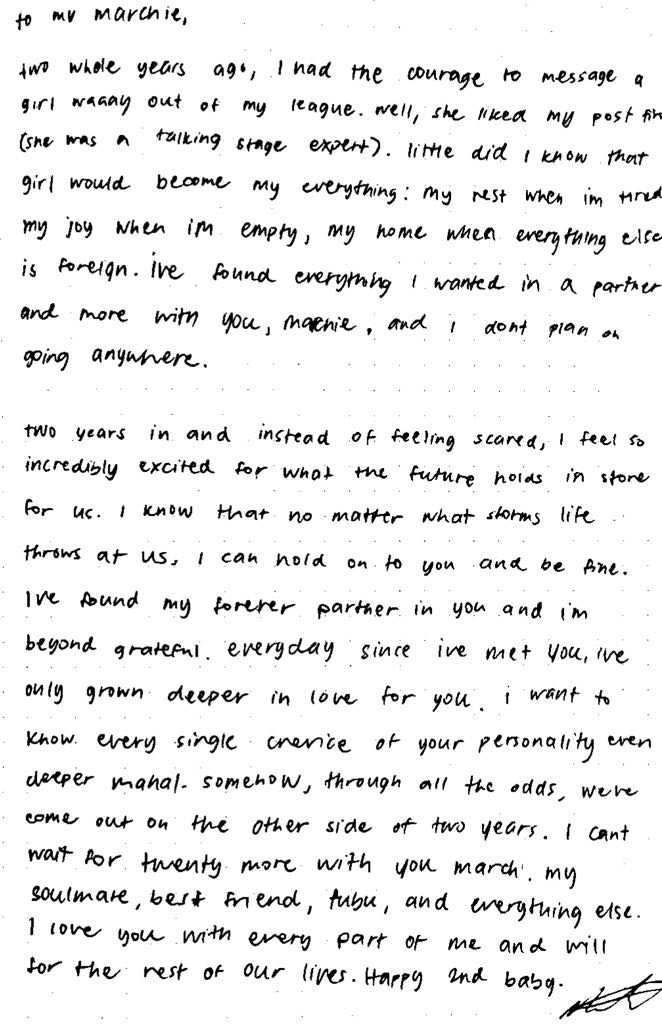 to my marchie,
two whole years ago, I had the courage to message a
girl waaay out of my league. well, she liked my post
(she was a talking stage expert). little did I know that
girl would become my everything: my rest when im tired
my joy when im empty, my home when everything else
is foreign. ive found everything I wanted in a partner
and more with you, marchie, and i dont plan on
going anywhere.
two years in and instead of feeling scared, I feel so
incredibly excited for what the future holds in store
for us. I know that no matter what storms life
throws at us, I can hold on to you and be fine.
Ive found my forever partner in you and i'm
beyond grateful. everyday since ive met you, ive
only grown deeper in love for you. i want to
know every single crevice of your personality even
deeper mahal. somehow, through all the odds, we've
come out on the other side of two years. I cant
wait for twenty more with you march. my
soulmate, best friend, tubu, and everything else.
I love you with every part of me and will
for the rest of our lives. Happy 2nd baby.